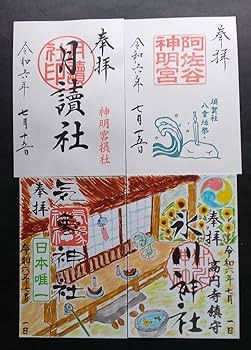 奉拝
月讀社
神明宮摂社
令和六年
七月一五日
奉拝
阿佐谷
神明宮
須賀社
八雲祭
令和六年
七月一五日
奉拝
気象神社
日本唯一
令和六年七月一日
奉拝
氷川神社
高円寺鎮守
令和六年七月一日